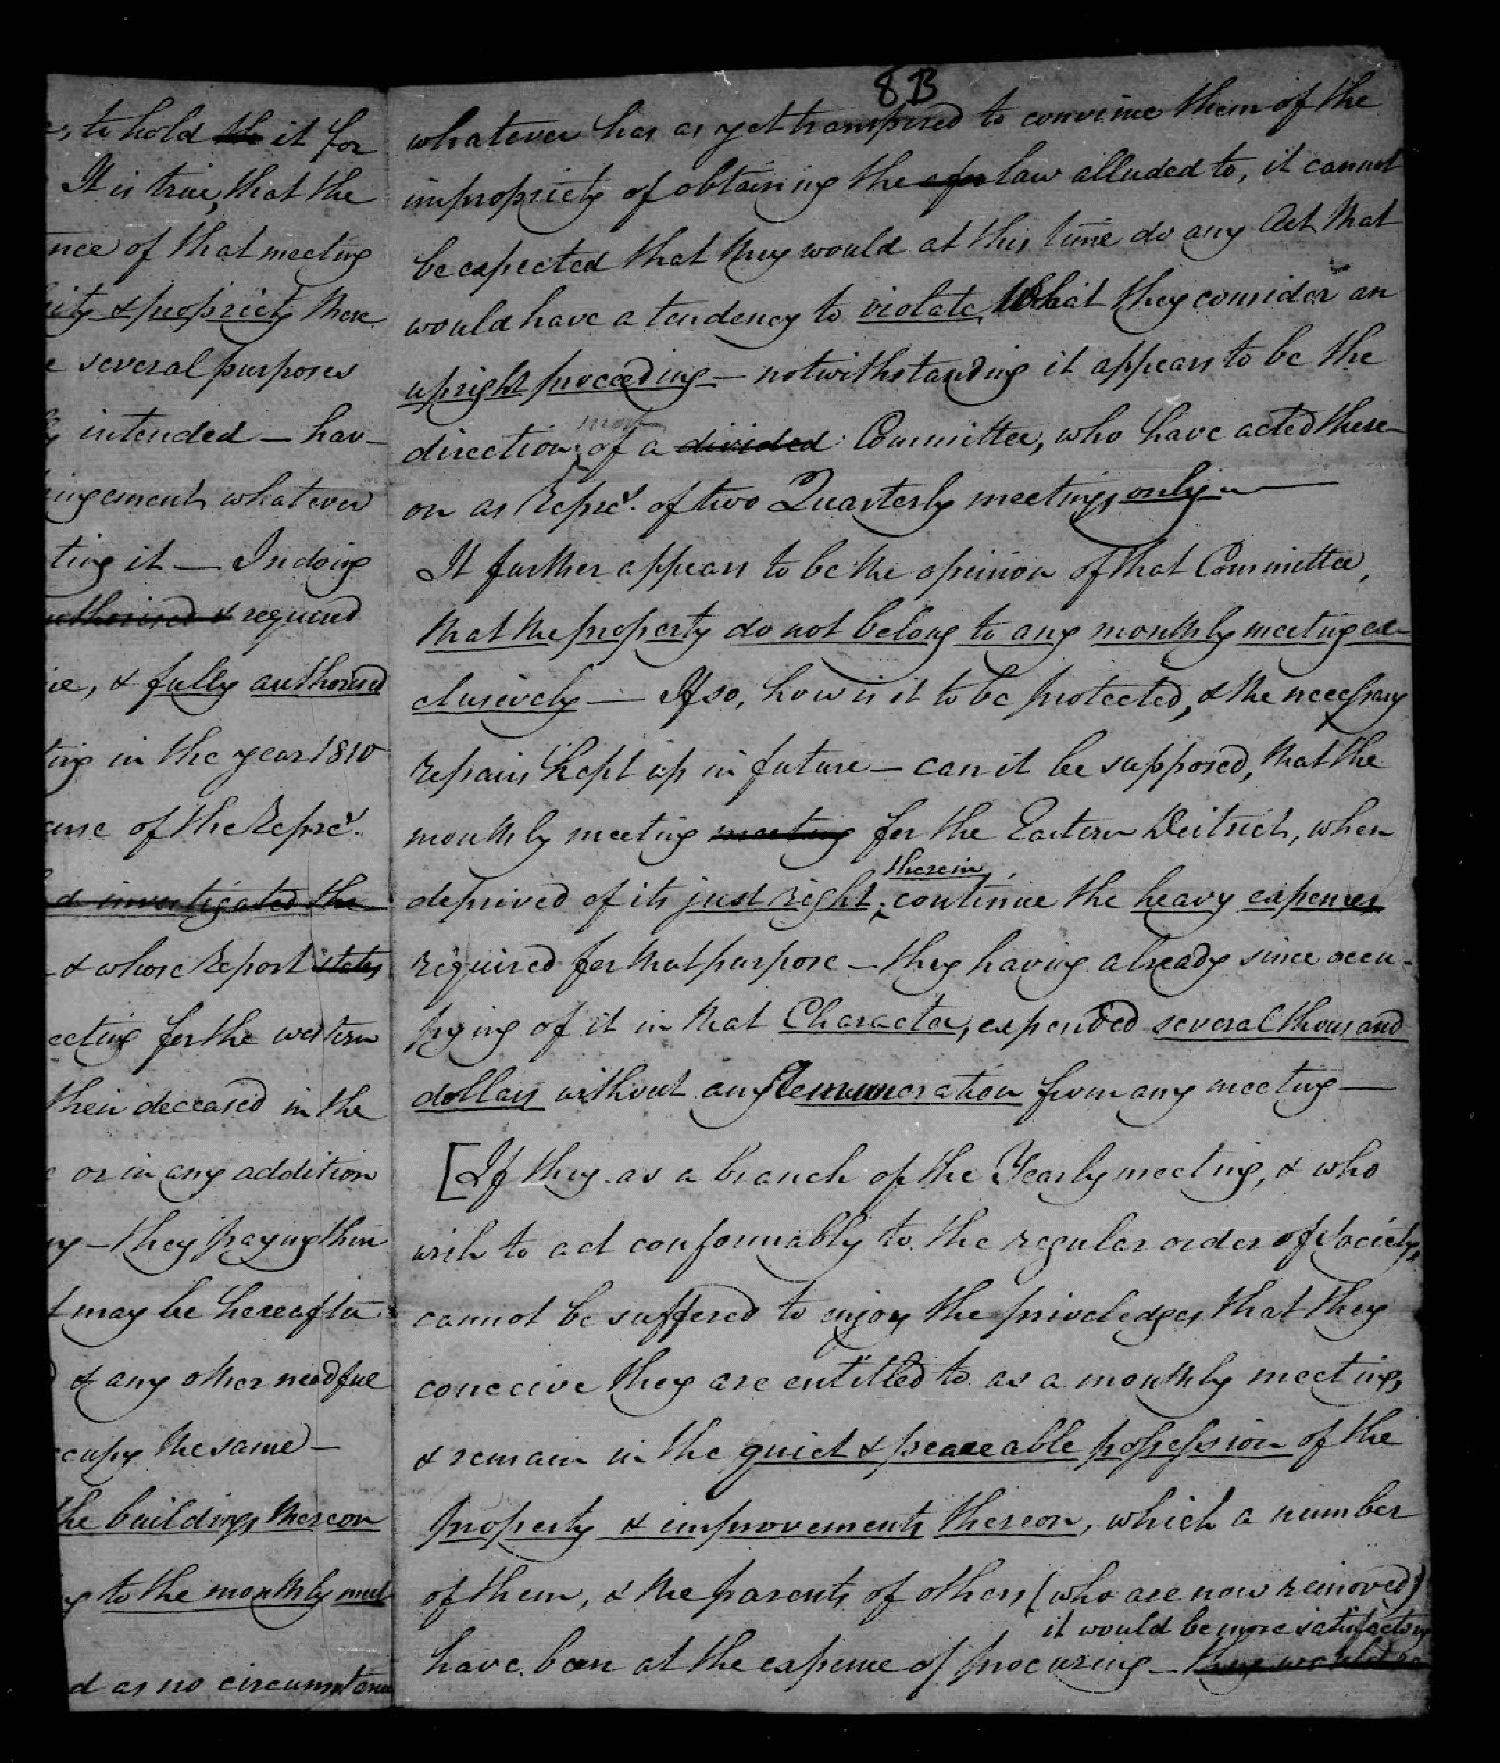 8B
s, to hold the it for
It is true, that the
nce of that meeting
ity & propriety there
e several purposes
y intended — hav-
ingements whatever
ting it — In doing
uthorised & required
ie, & fully authorised
ting in the year 1810
ance of the Represv.
d investigated the
& whose Report states
eeting for the western
their deceased in the
e or in any addition
ny — they paying their
t may be hereafter
& any other needful
ccupy the same —
the buildings thereon
y to the monthly meet
d as no circumstance
whatever has as yet transpired to convince them of the
impropriety of obtaining the law alluded to, it cannot
be expected that they would at this time do any Act that
would have a tendency to violate What they consider an
upright proceeding — notwithstanding it appears to be the
most
direction of a divided Committee, who have acted there-
on as Represv. of two Quarterly meetings only —
It further appears to be the opinion of that Committee,
that the property do not belong to any monthly meeting ex-
clusively — If so, how is it to be protected, & the necessary
repairs kept up in future — can it be supposed, that the
monthly meeting meeting for the Eastern District, when
therein,
deprived of its just right, continue the heavy expenses
required for that purpose — they having already since occu-
pying of it in that Character, expended several thousand
dollars without any Remuneration from any meeting —
[If they as a branch of the Yearly meeting, & who
wish to act conformably to the regular order of Society,
cannot be suffered to enjoy the priveledges that they
conceive they are entitled to as a monthly meeting,
& remain in the quiet & peaceable possession of the
property & improvements thereon, which a number
of them, & the parents of others (who are now removed)
it would be more satisfactory
have been at the expense of procuring — they would be